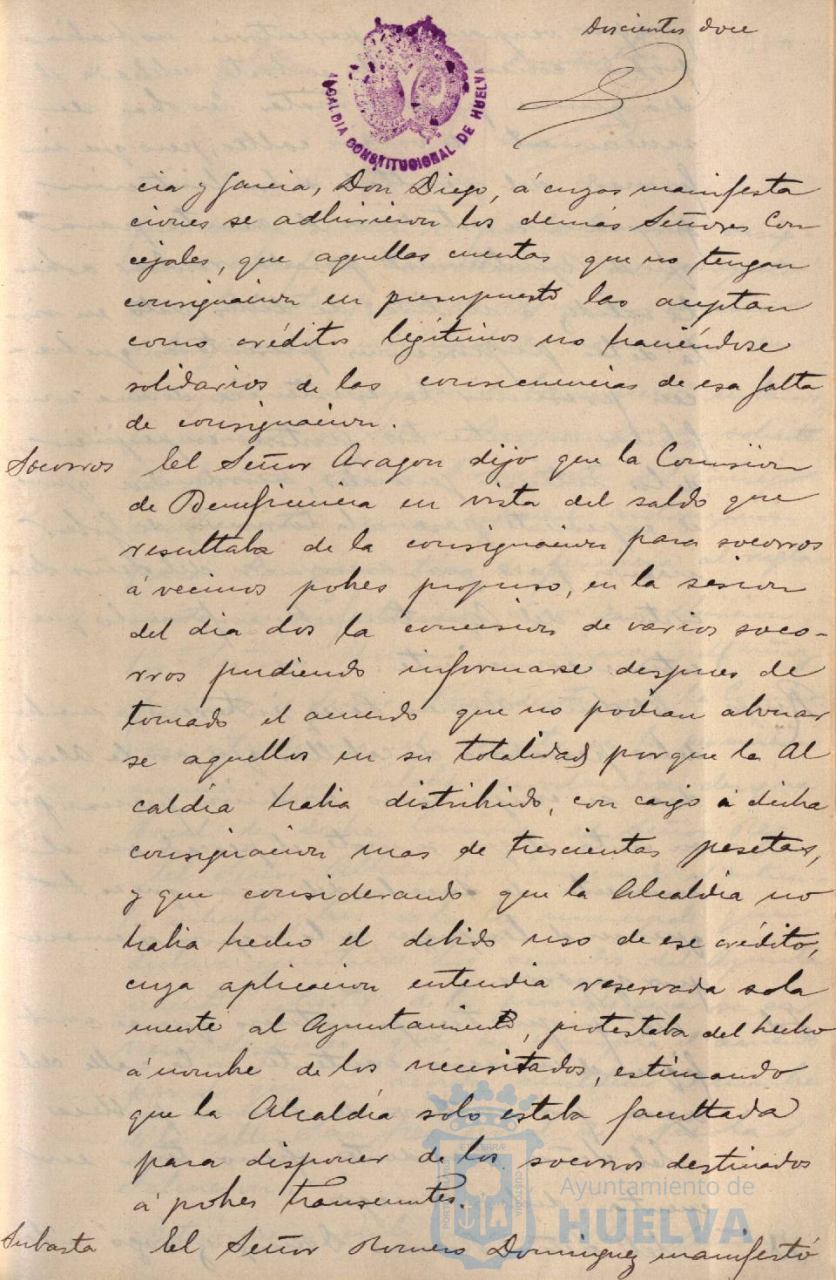 Doscientos doce
ALCALDIA CONSTITUCIONAL DE HUELVA
cia y Garcia, Don Diego, á cuyas manifesta
ciones se adhirieron los demás Señores Con
cejales, que aquellas cuentas que no tengan
consignacion en presupuesto las aceptan
como créditos legítimos no haciéndose
solidarios de las consecuencias de esa falta
de consignacion.
Socorros El Señor Aragon dijo que la Comision
de Beneficencia en vista del saldo que
resultaba de la consignacion para socorros
á vecinos pobres propuso, en la sesion
del dia dos la concesion de varios soco-
rros pudiendo informarse despues de
tomado el acuerdo que no podian abonar
se aquellos en su totalidad porque la Al
caldia habia distribuido, con cargo á dicha
consignacion mas de trescientas pesetas,
y que considerando que la Alcaldia no
habia hecho el debido uso de ese crédito,
cuya aplicacion entendia reservada sola
mente al Ayuntamiento, protestaba del hecho
á nombre de los necesitados, estimando
que la Alcaldía solo estaba facultada
para disponer de los socorros destinados
á pobres transeuntes.
Subasta El Señor Romero Dominguez manifestó
Ayuntamiento de
HUELVA